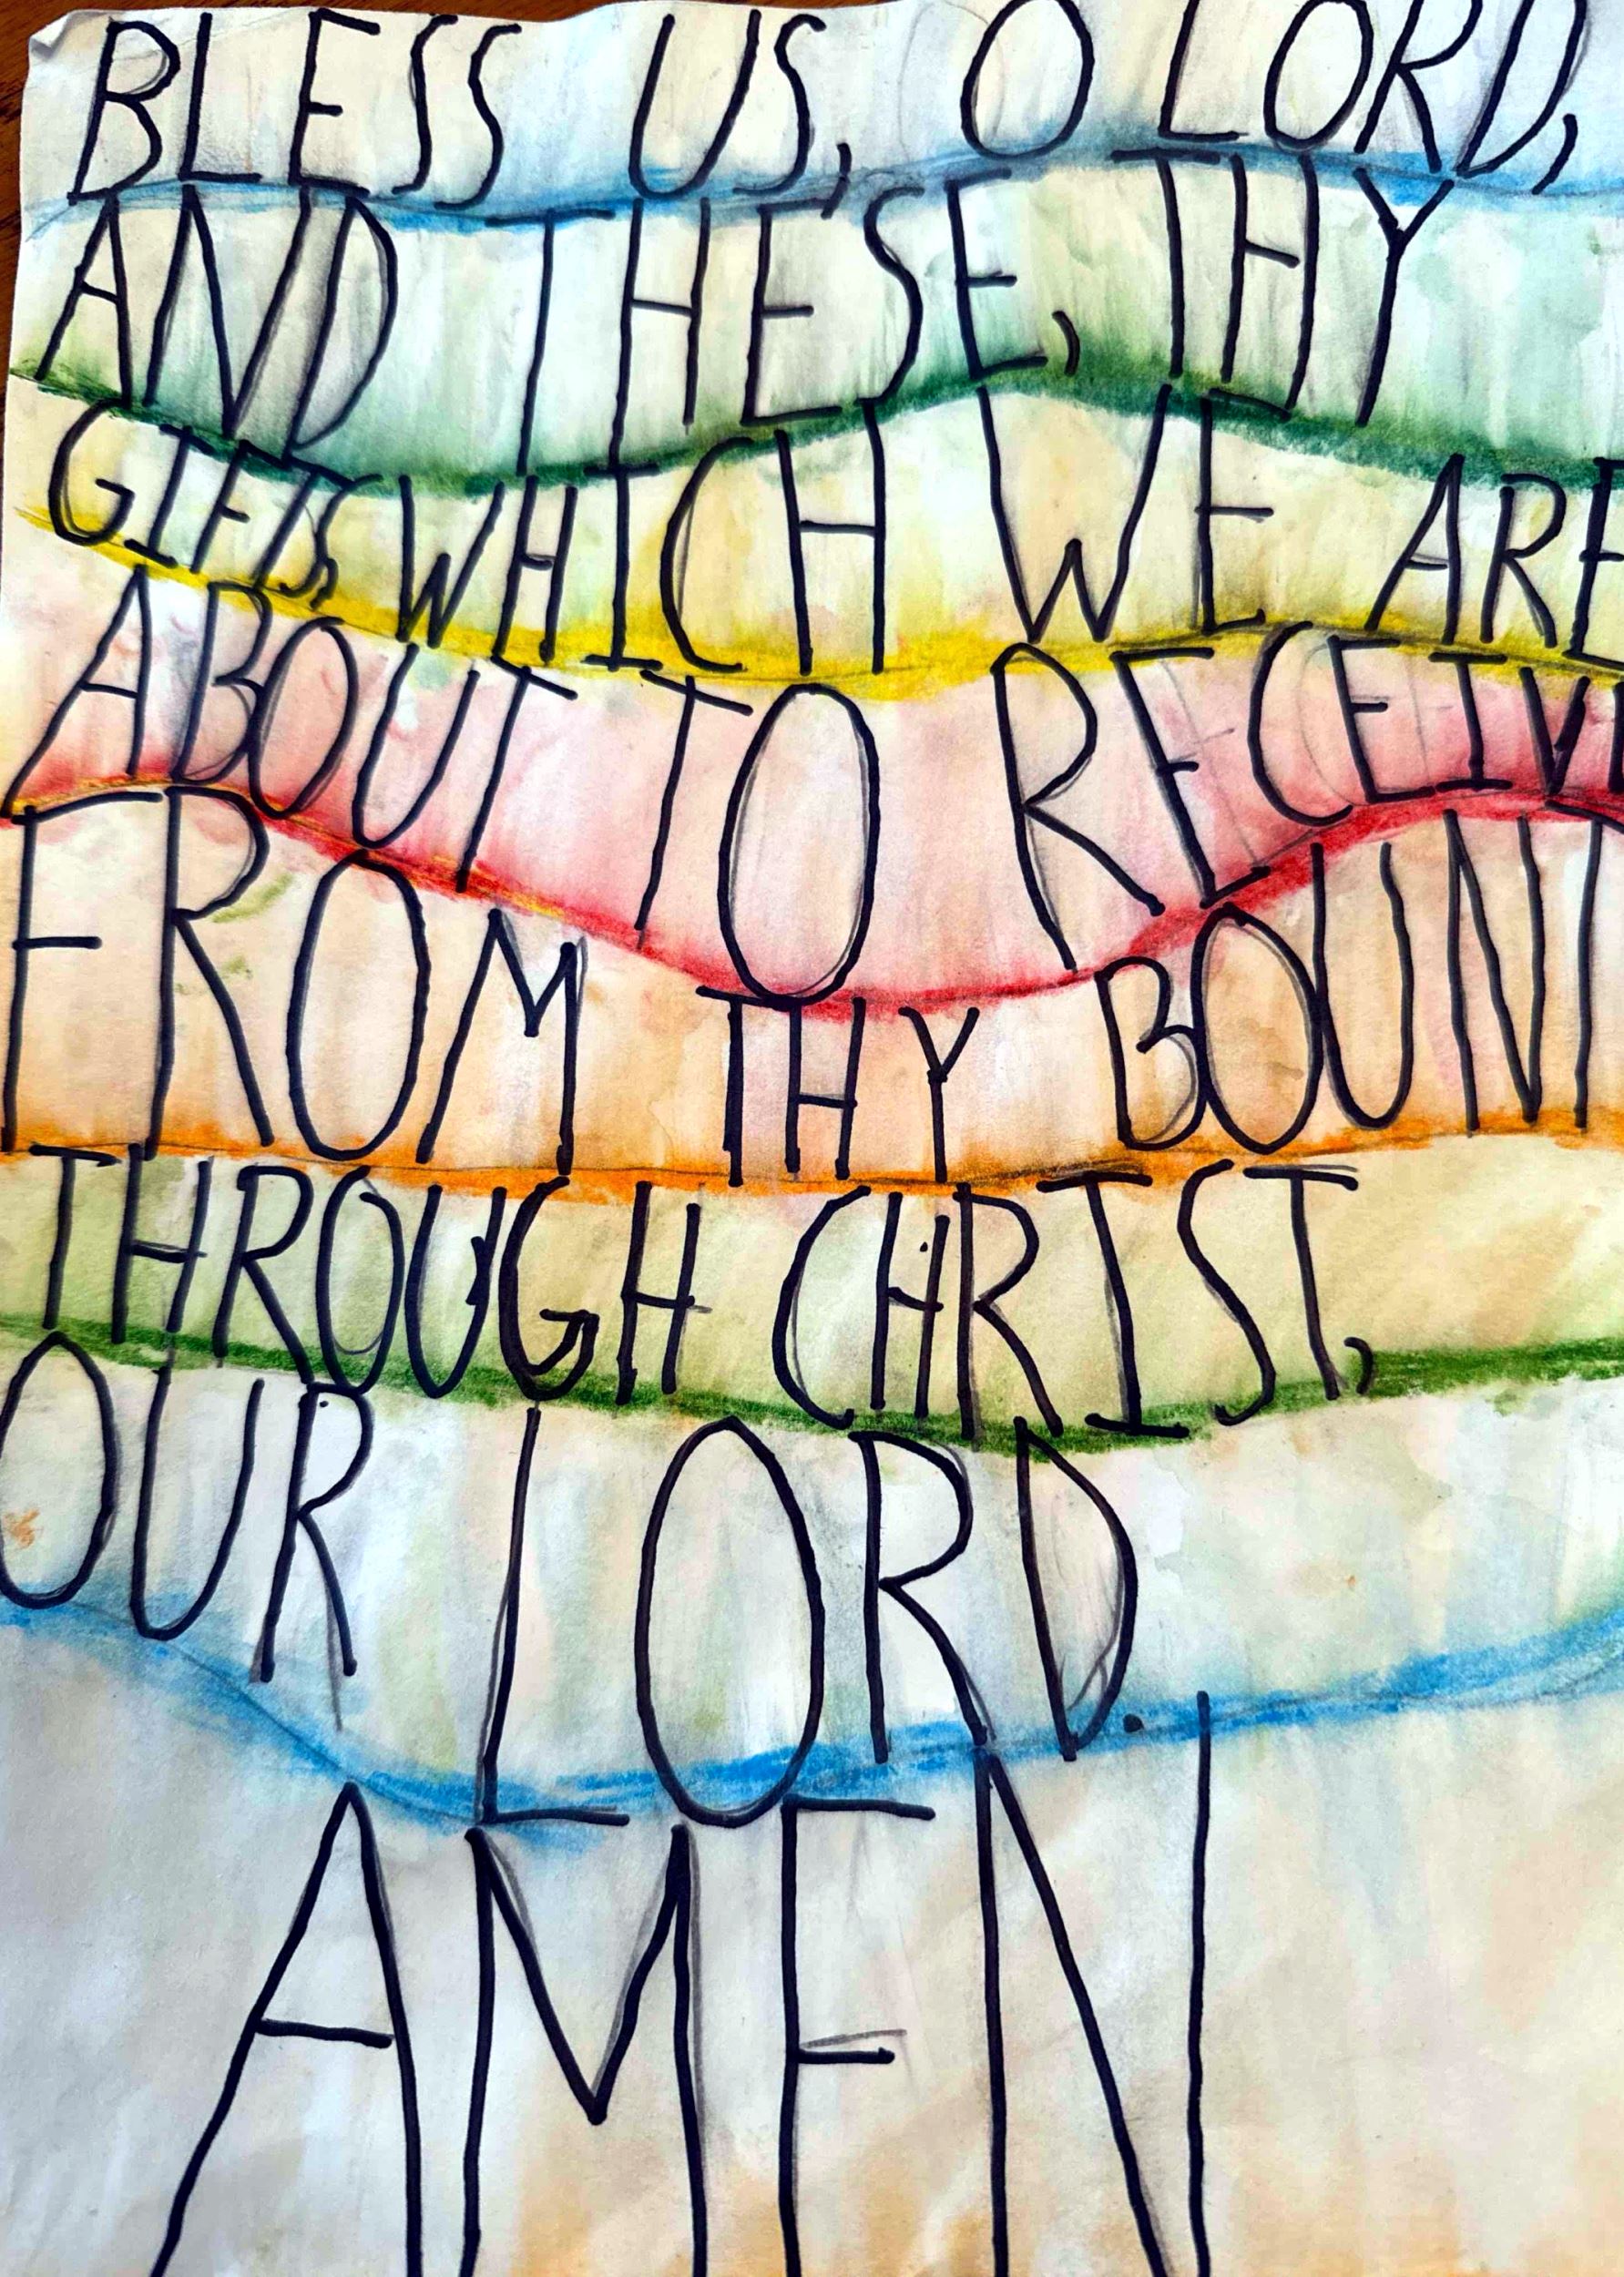 BLESS US, O LORD,
AND THESE, THY
GIFTS, WHICH WE ARE
ABOUT TO RECEIVE
FROM THY BOUNT
THROUGH CHRIST,
OUR LORD.
AMEN